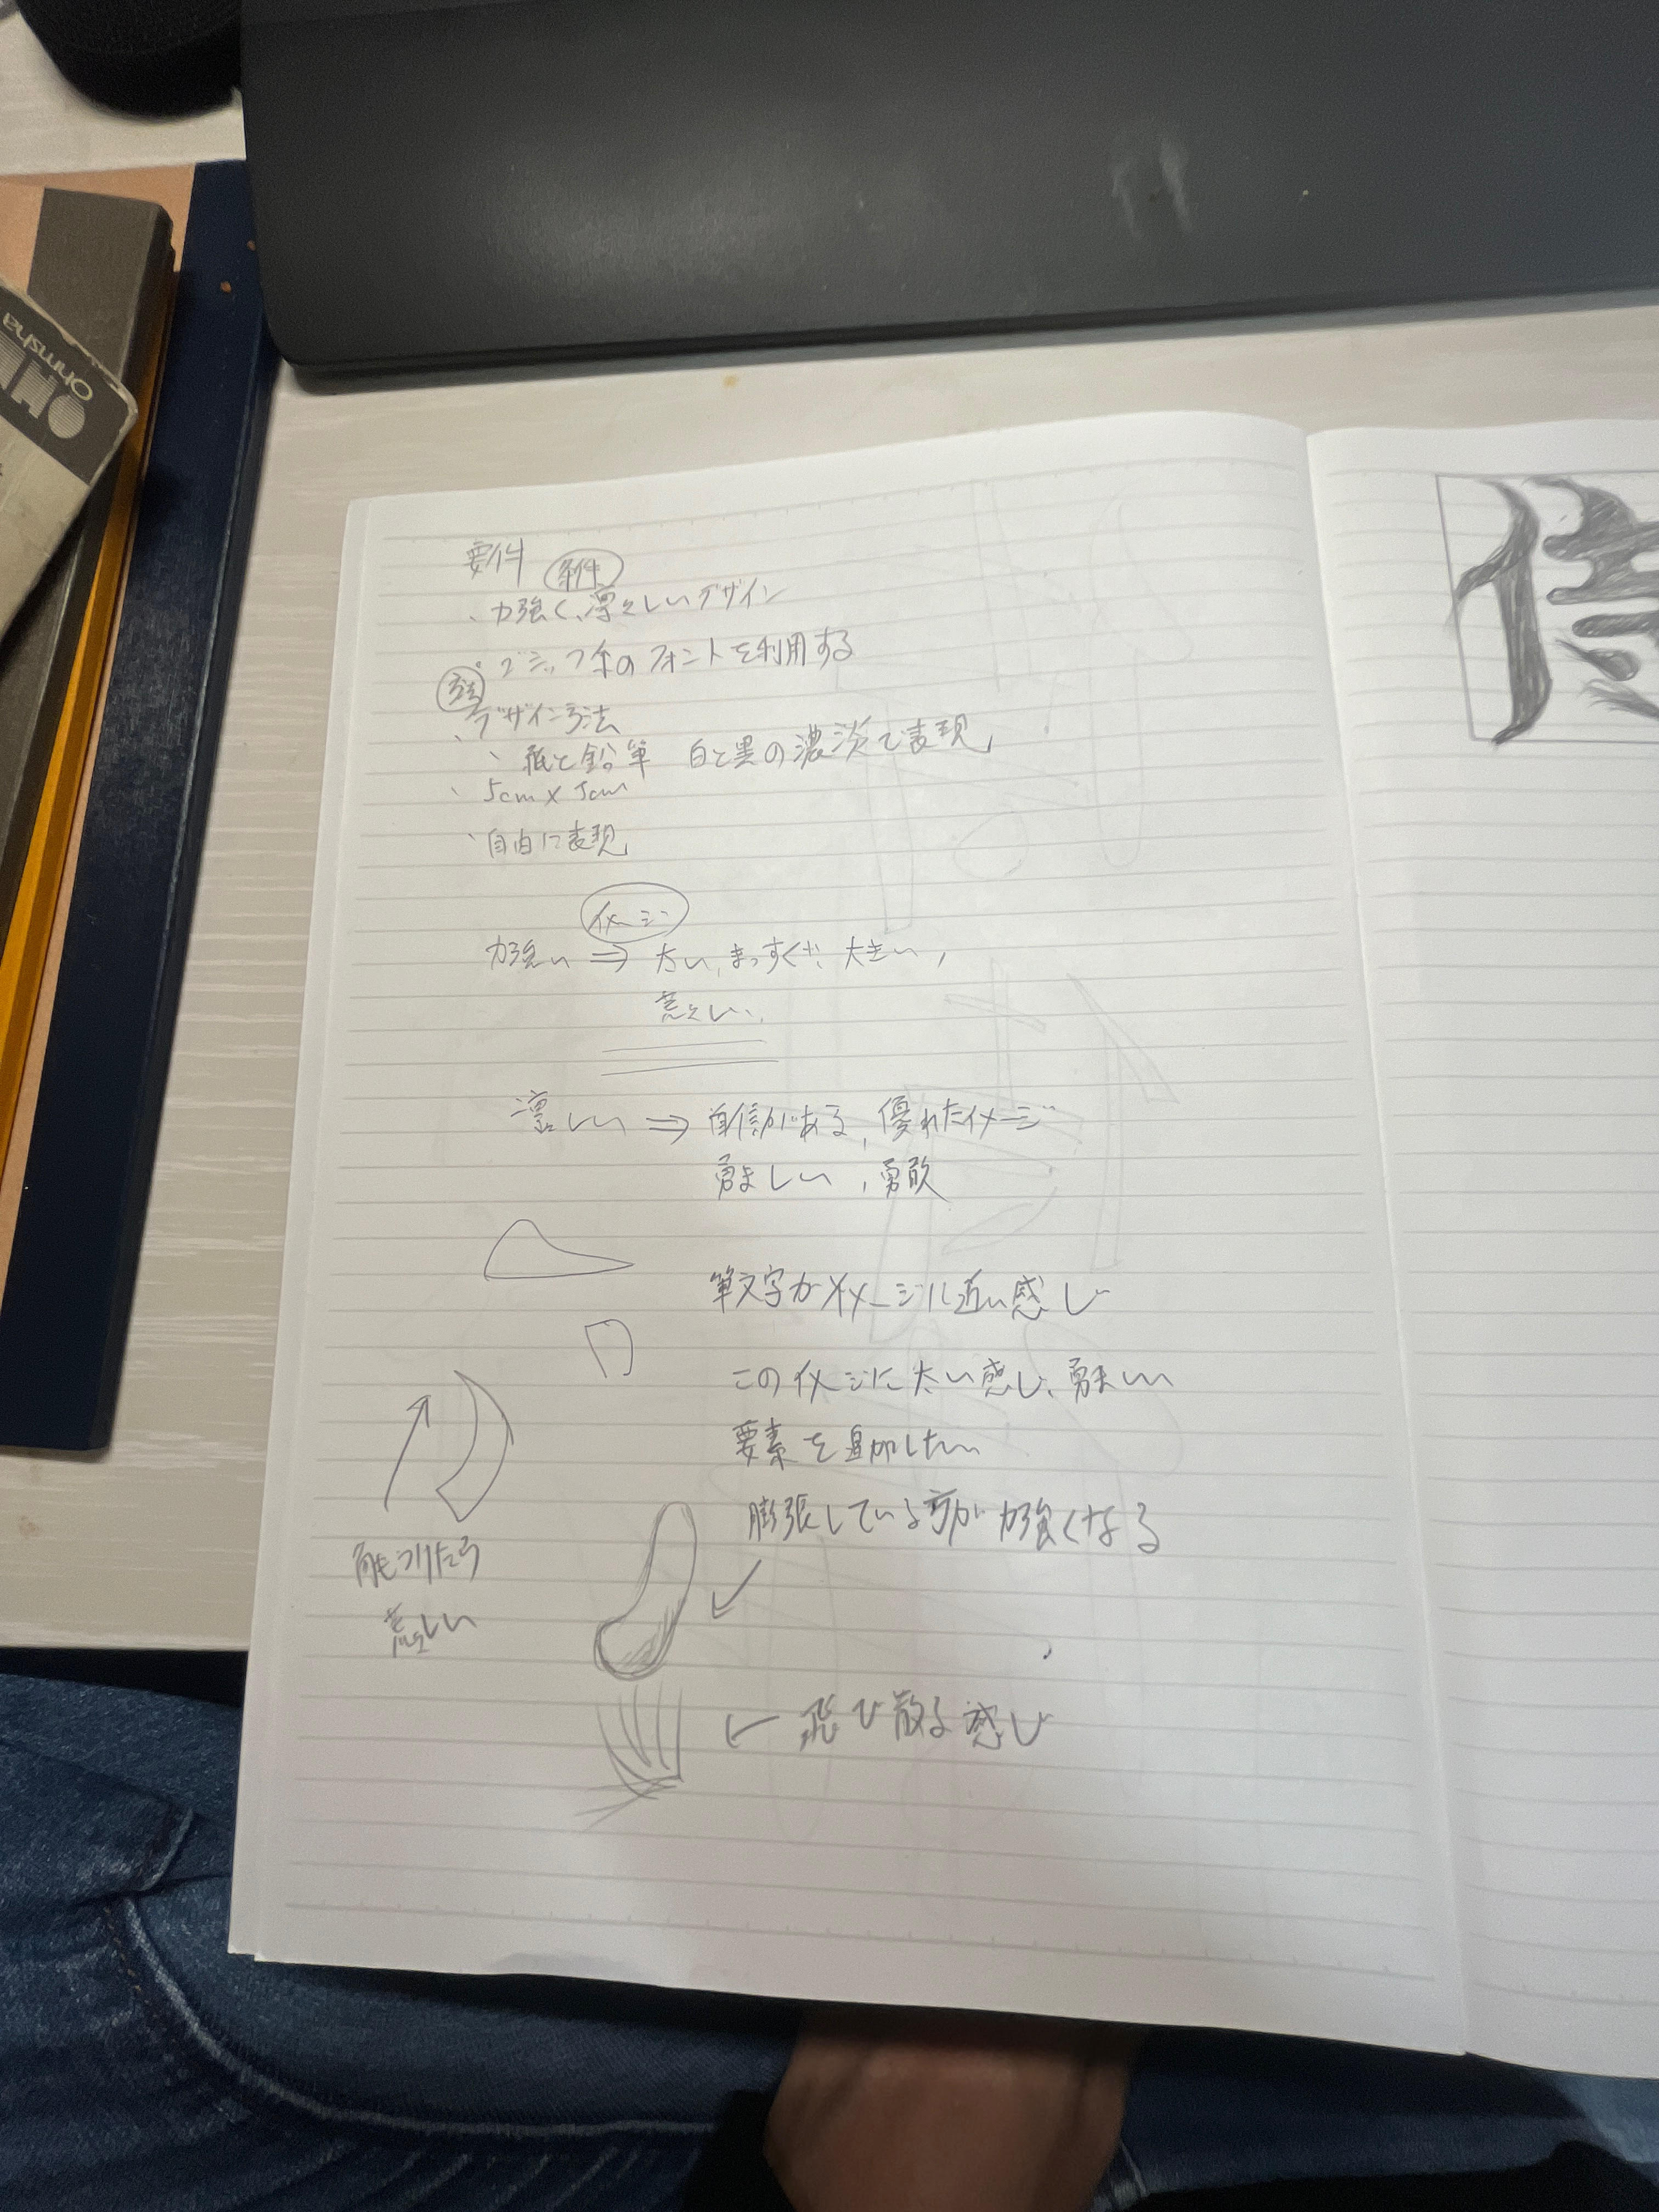 要件 条件
、力強く、凛々しいデザイン
ゴシック系のフォントを利用する
方法
、デザイン方法
、紙と鉛筆 白と黒の濃淡で表現
、5cm×5cm
、自由に表現
イメージ
力強い ⇒ 太い、まっすぐ、大きい、
荒々しい、
凛々しい ⇒ 自信がある、優れたイメージ
勇ましい、勇敢
筆文字がイメージに近い感じ
このイメージに太い感じ、勇ましい
要素を追加したい
膨張している方が力強くなる
角をつけたら
荒々しい
← 飛び散る感じ
侍
Ohmsha
OHM